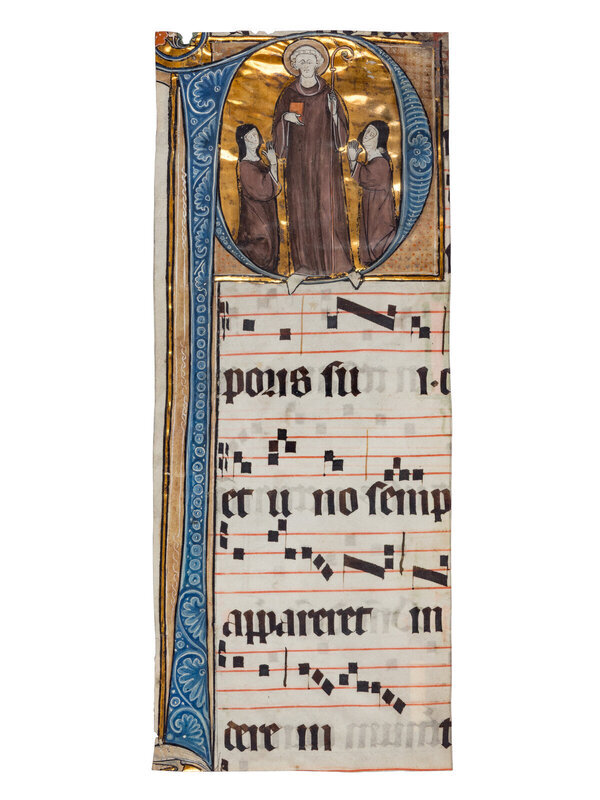 poris su i·c
et u no semp
appareret in
dere in t